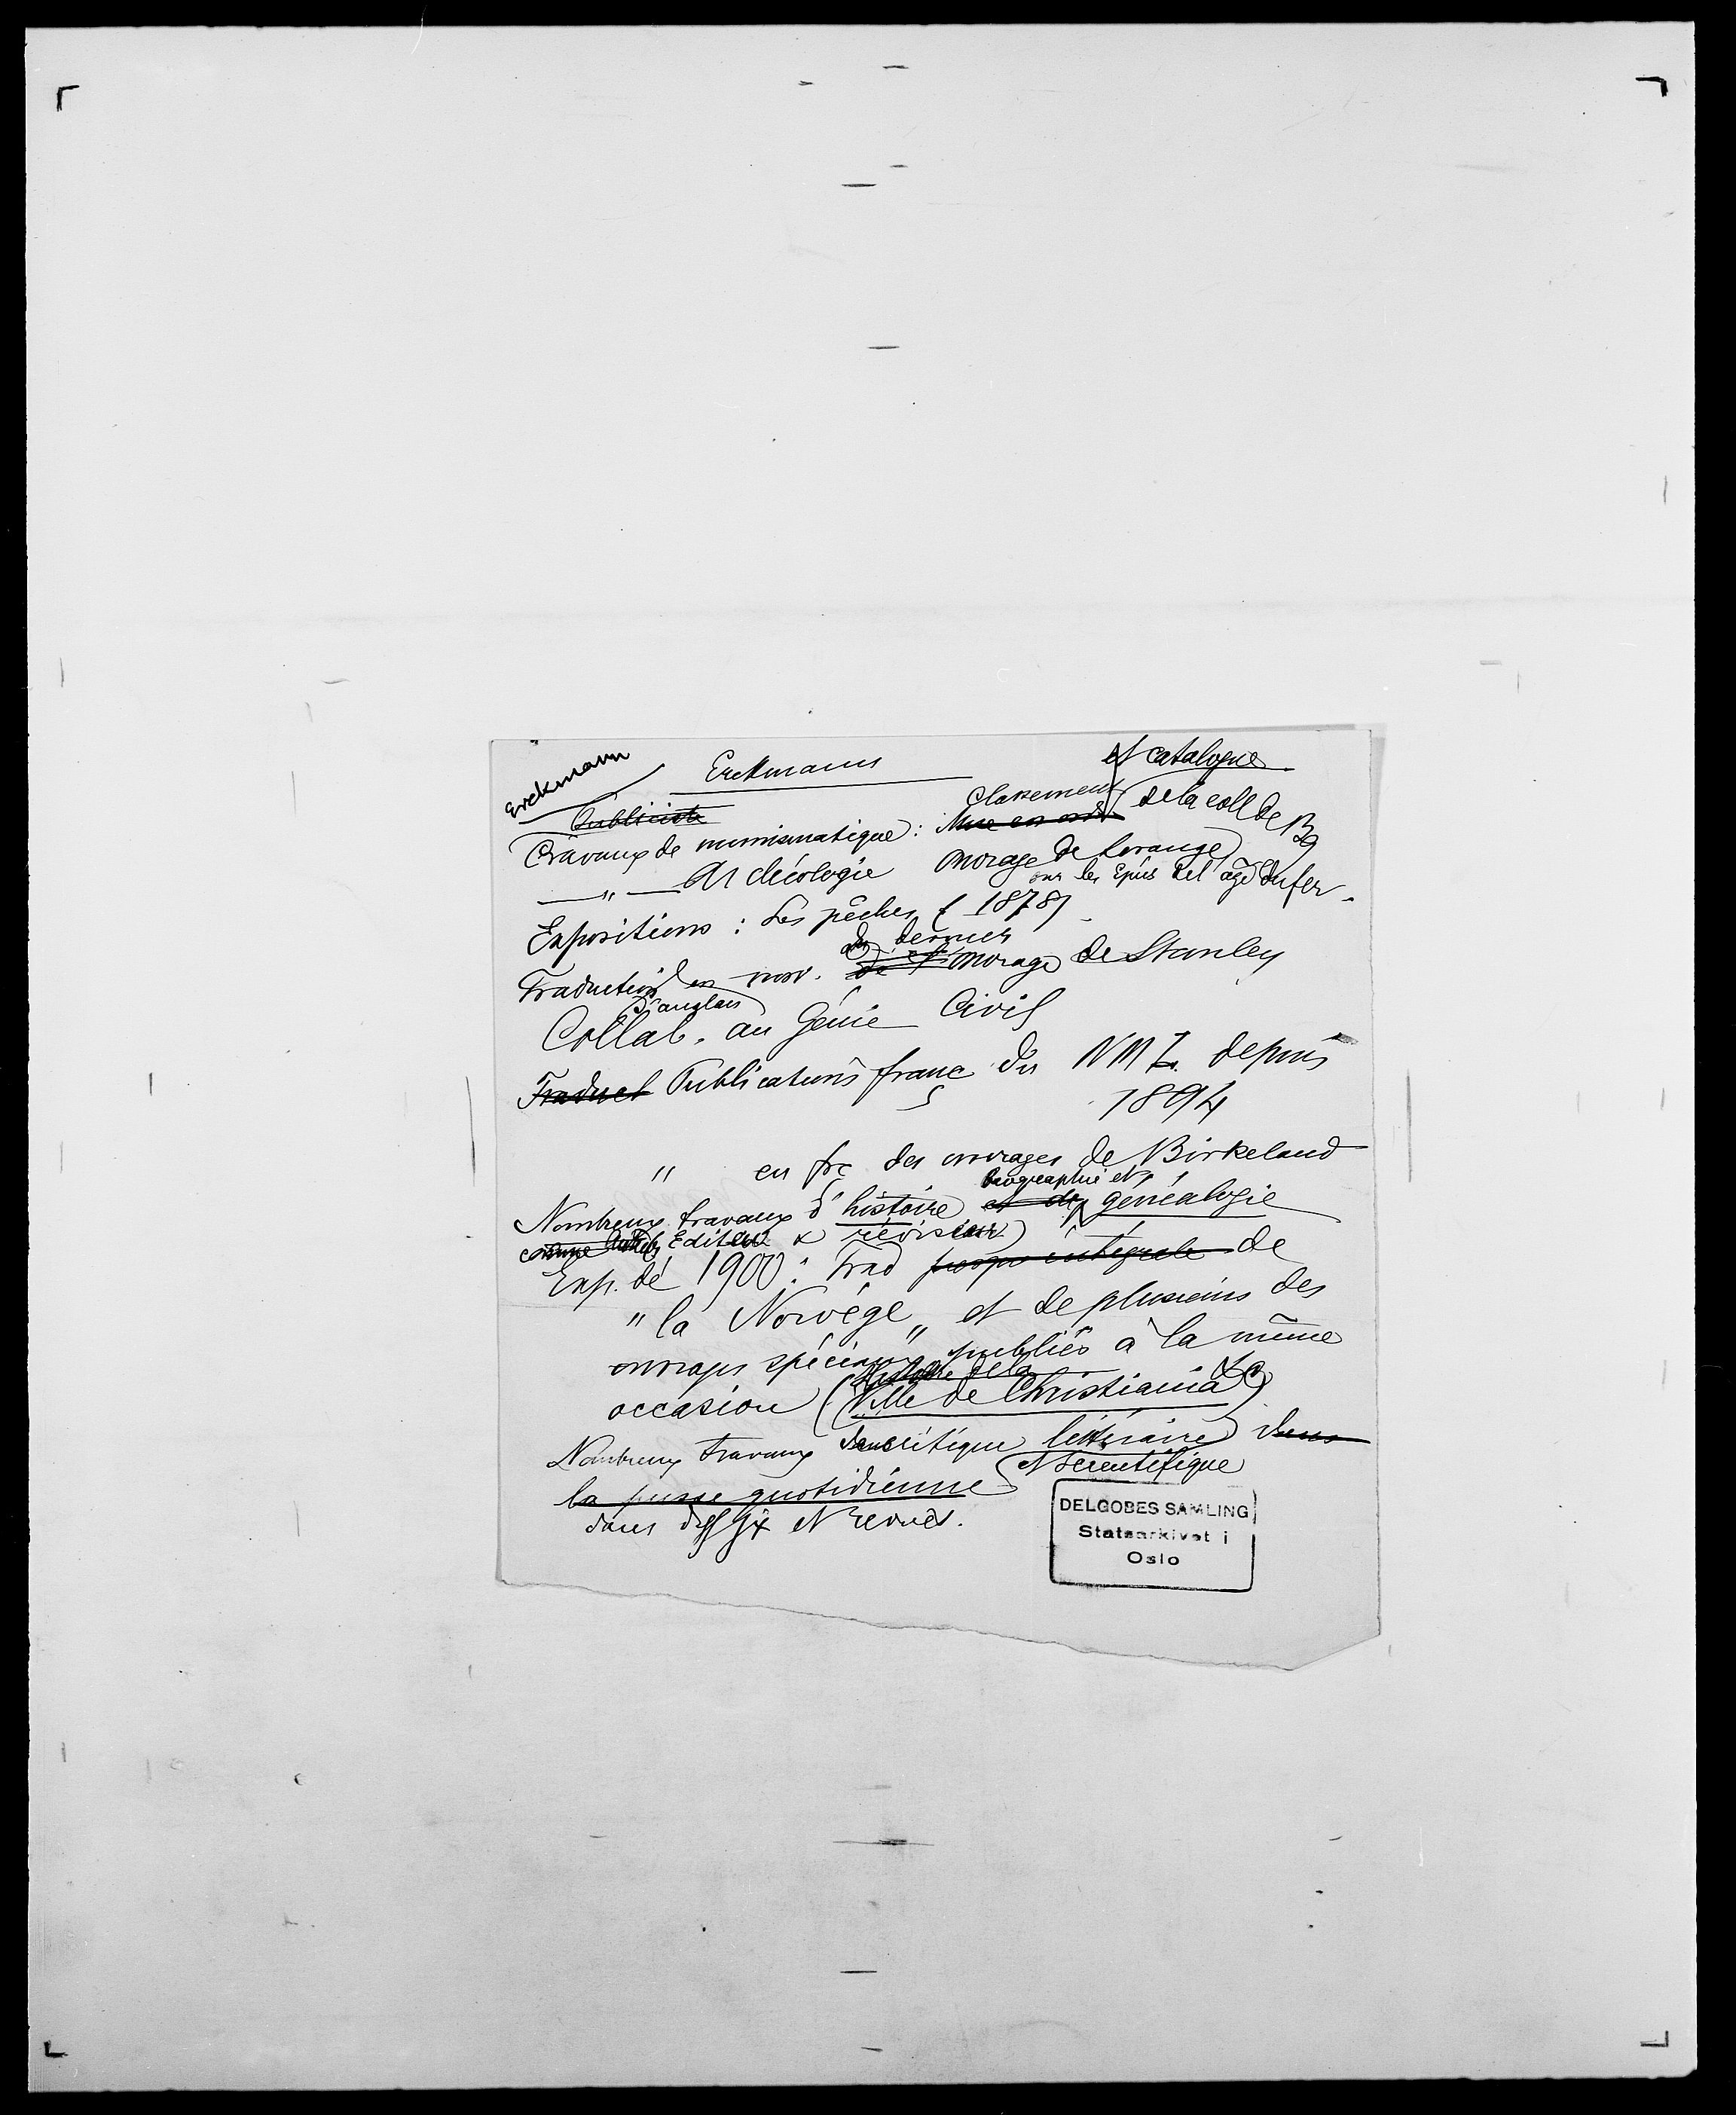 Erckmann
Erckmann
et catalogue
Publiciste
Classement
de la coll de Bg
Travaux de numismatique: Mise en ordre
—"— Archéologie Ouvrage de Lorange
sur les Epées de l'âge du fer.
Expositions: Les pêches (1878)
du dernier
Traduction en norv. de l' Ouvrage de Stanley
d'anglais
Collab. au Génie Civil
Traduct Publications franç du NMT. depuis
1894
" en frç des ouvrages de Birkeland
biographie et
Nombreux travaux d'histoire et de généalogie
comme Editeur & réviseur)
Exp. de 1900: Trad presque intégrale de
"la Norvége" et de plusieurs des
ouvrages spéciaux publiés à la même
Histoire de la
occasion (Ville de Christiania &c)
Nombreux travaux de critique littéraire dans
et scientifique
la presse quotidienne
dans diff jx et revues.
DELGOBES SAMLING
Statsarkivet i
Oslo